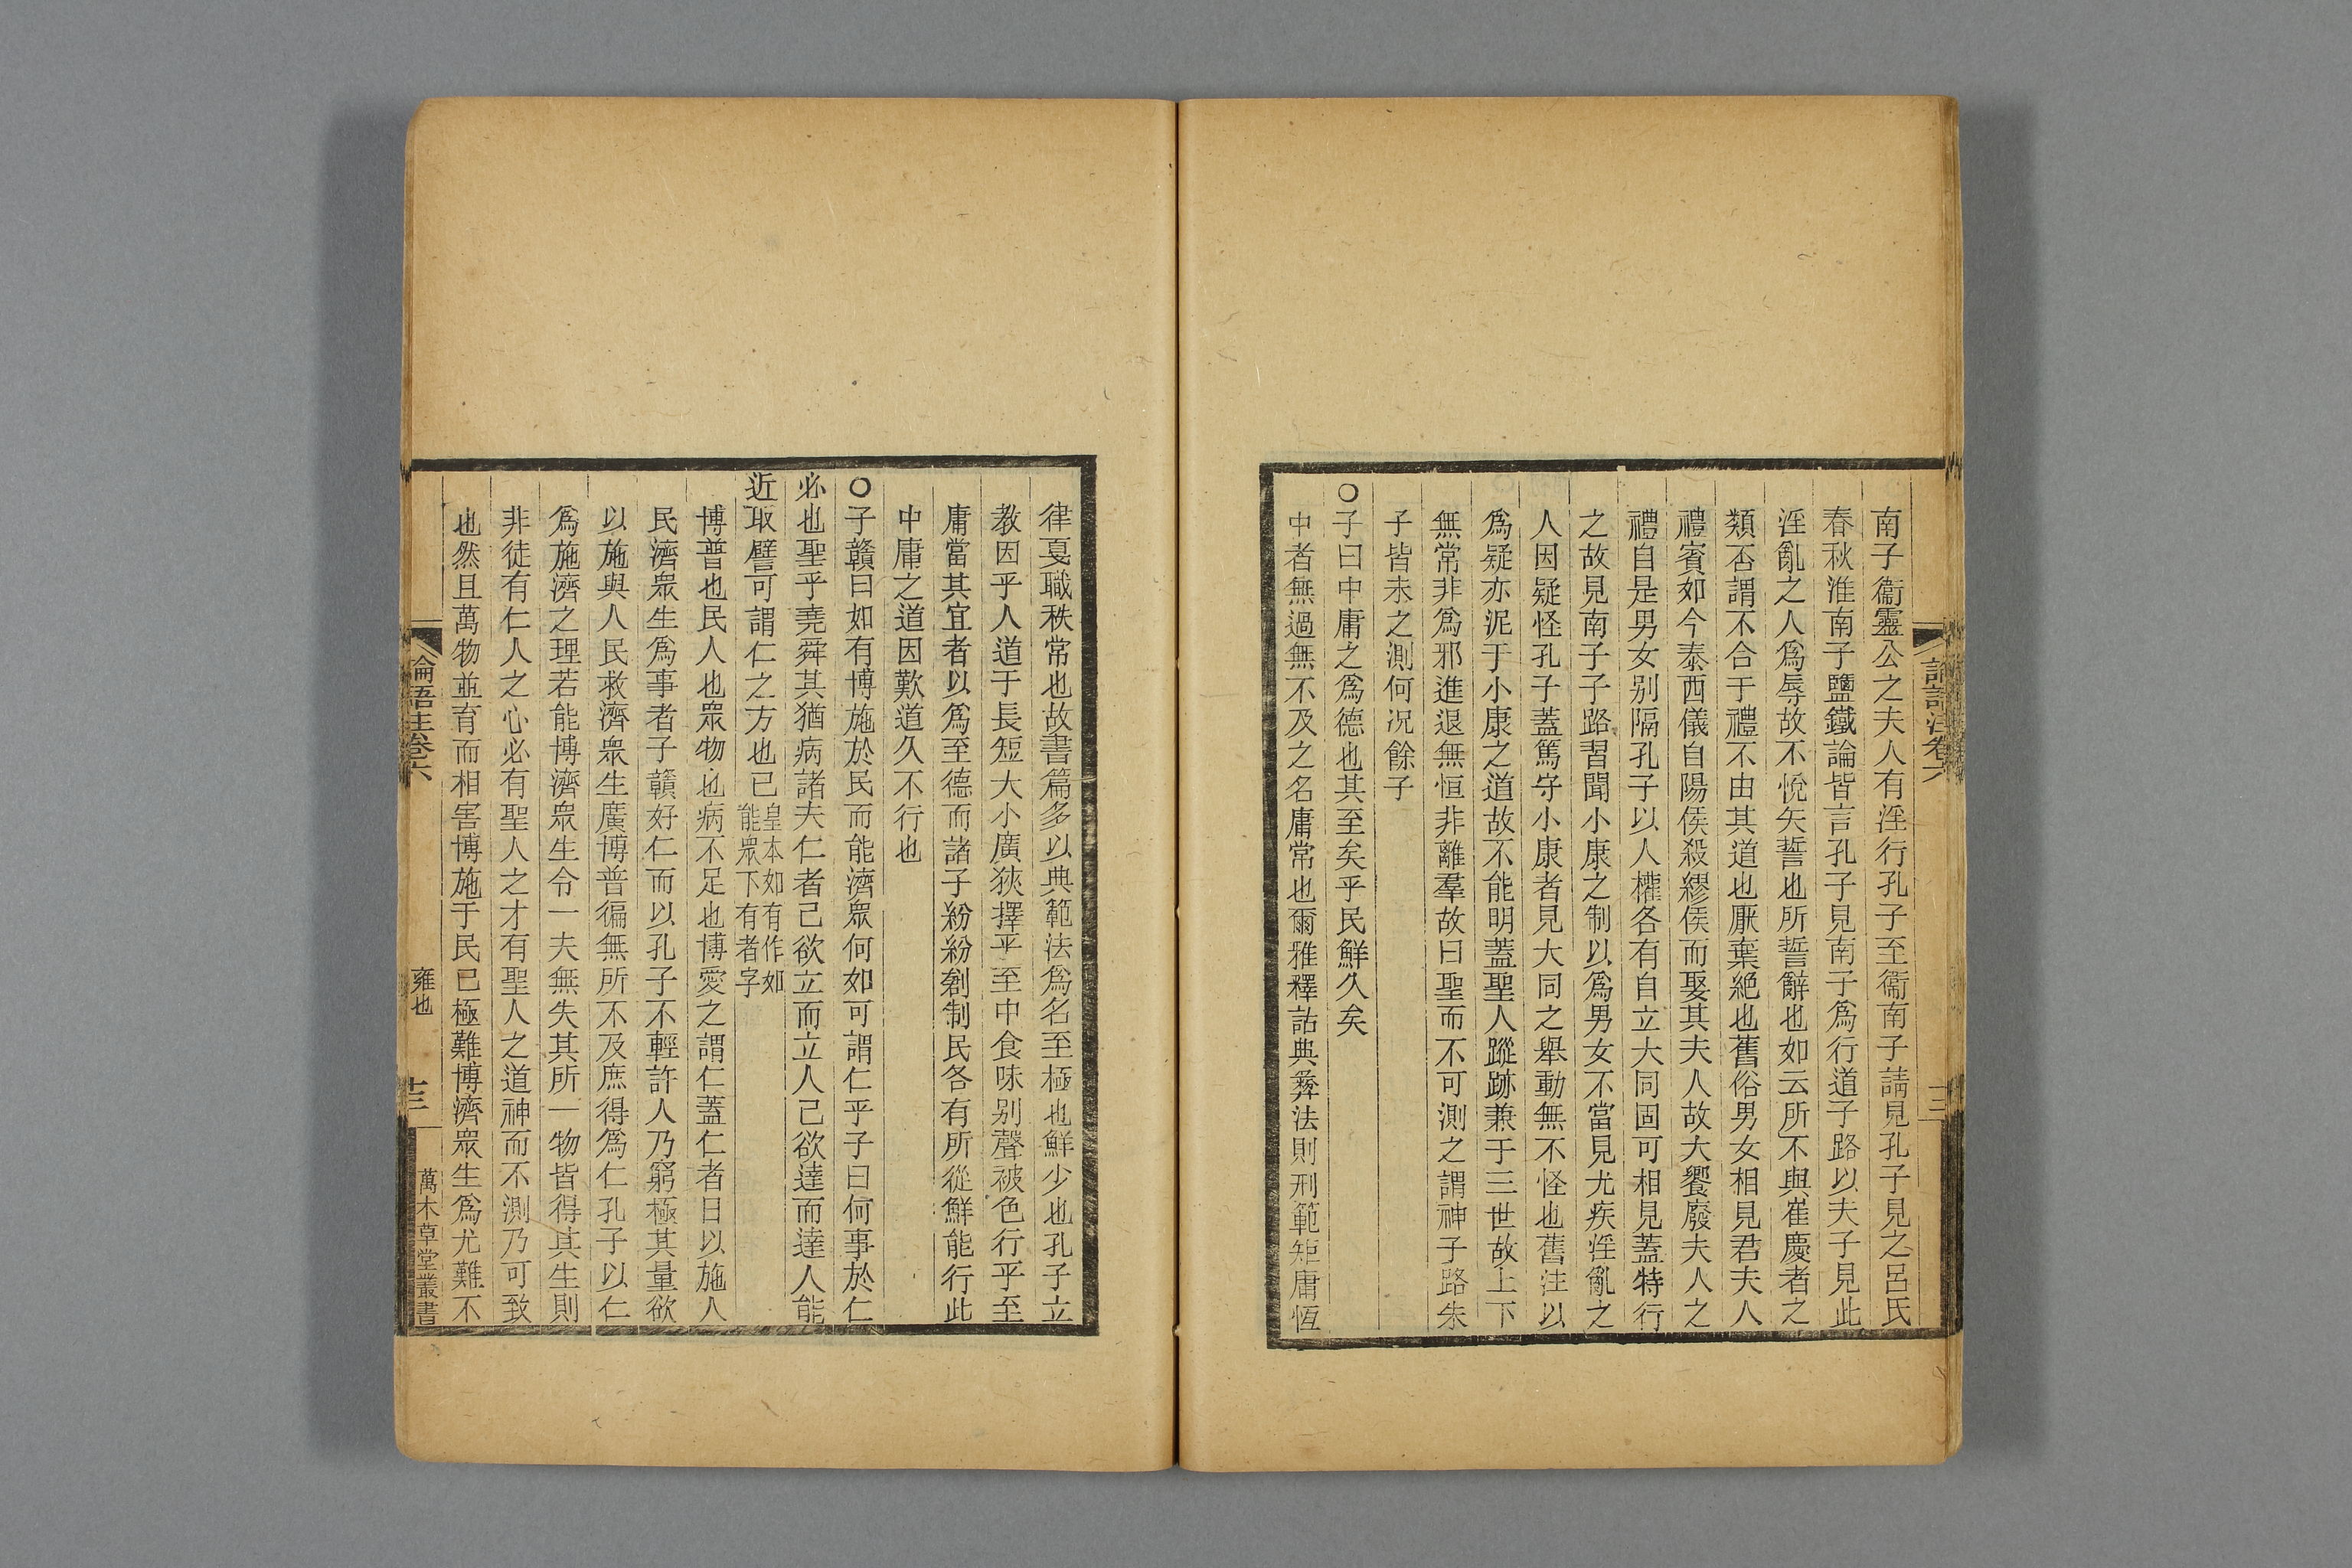 南子衞靈公之夫人有淫行孔子至衞南子請見孔子見之呂氏
春秋淮南子鹽鐵論皆言孔子見南子為行道子路以夫子見此
淫亂之人為辱故不悅矢誓也所誓辭也如云所不與崔慶者之
類否謂不合于禮不由其道也厭棄絕也舊俗男女相見君夫人
禮賓如今泰西儀自陽侯殺繆侯而娶其夫人故大饗廢夫人之
禮自是男女别隔孔子以人權各有自立大同固可相見蓋特行
之故見南子子路習聞小康之制以為男女不當見尤疾淫亂之
人因疑怪孔子蓋篤守小康者見大同之舉動無不怪也舊注以
為疑亦泥于小康之道故不能明蓋聖人蹤跡兼于三世故上下
無常非為邪進退無恒非離羣故曰聖而不可測之謂神子路朱
子皆未之測何况餘子
○子曰中庸之為德也其至矣乎民鮮久矣
中者無過無不及之名庸常也爾雅釋詁典彝法則刑範矩庸恆
論語注卷六
律戛職秩常也故書篇多以典範法為名至極也鮮少也孔子立
教因乎人道于長短大小廣狹擇乎至中食味别聲被色行乎至
庸當其宜者以為至德而諸子紛紛剏制民各有所從鮮能行此
中庸之道因歎道久不行也
○子贛曰如有博施於民而能濟眾何如可謂仁乎子曰何事於仁
必也聖乎堯舜其猶病諸夫仁者己欲立而立人己欲達而達人能
近取譬可謂仁之方也已
皇本如有作如
能眾下有者字
博普也民人也眾物也病不足也博愛之謂仁蓋仁者日以施人
民濟眾生為事者子贛好仁而以孔子不輕許人乃窮極其量欲
以施與人民救濟眾生廣博普徧無所不及庶得為仁孔子以仁
為施濟之理若能博濟眾生令一夫無失其所一物皆得其生則
非徒有仁人之心必有聖人之才有聖人之道神而不測乃可致
也然且萬物並育而相害博施于民已極難博濟眾生為尤難不
論語注卷六
雍也
十三
萬木草堂叢書